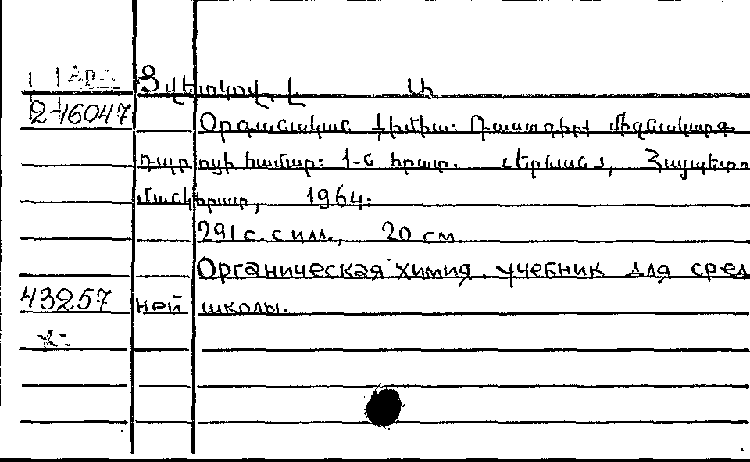 Арм. Ցվետկով, Լ. Ա.
2-16047
Օրգանական քիմիա: Դասագիրք միջնակարգ
դպրոցի համար: 1-ն հրատ. Երևան, Հայպետ-
մանկհրատ, 1964:
291 с. с илл., 20 см.
Органическая химия. учебник для сред
43257 ней школы.